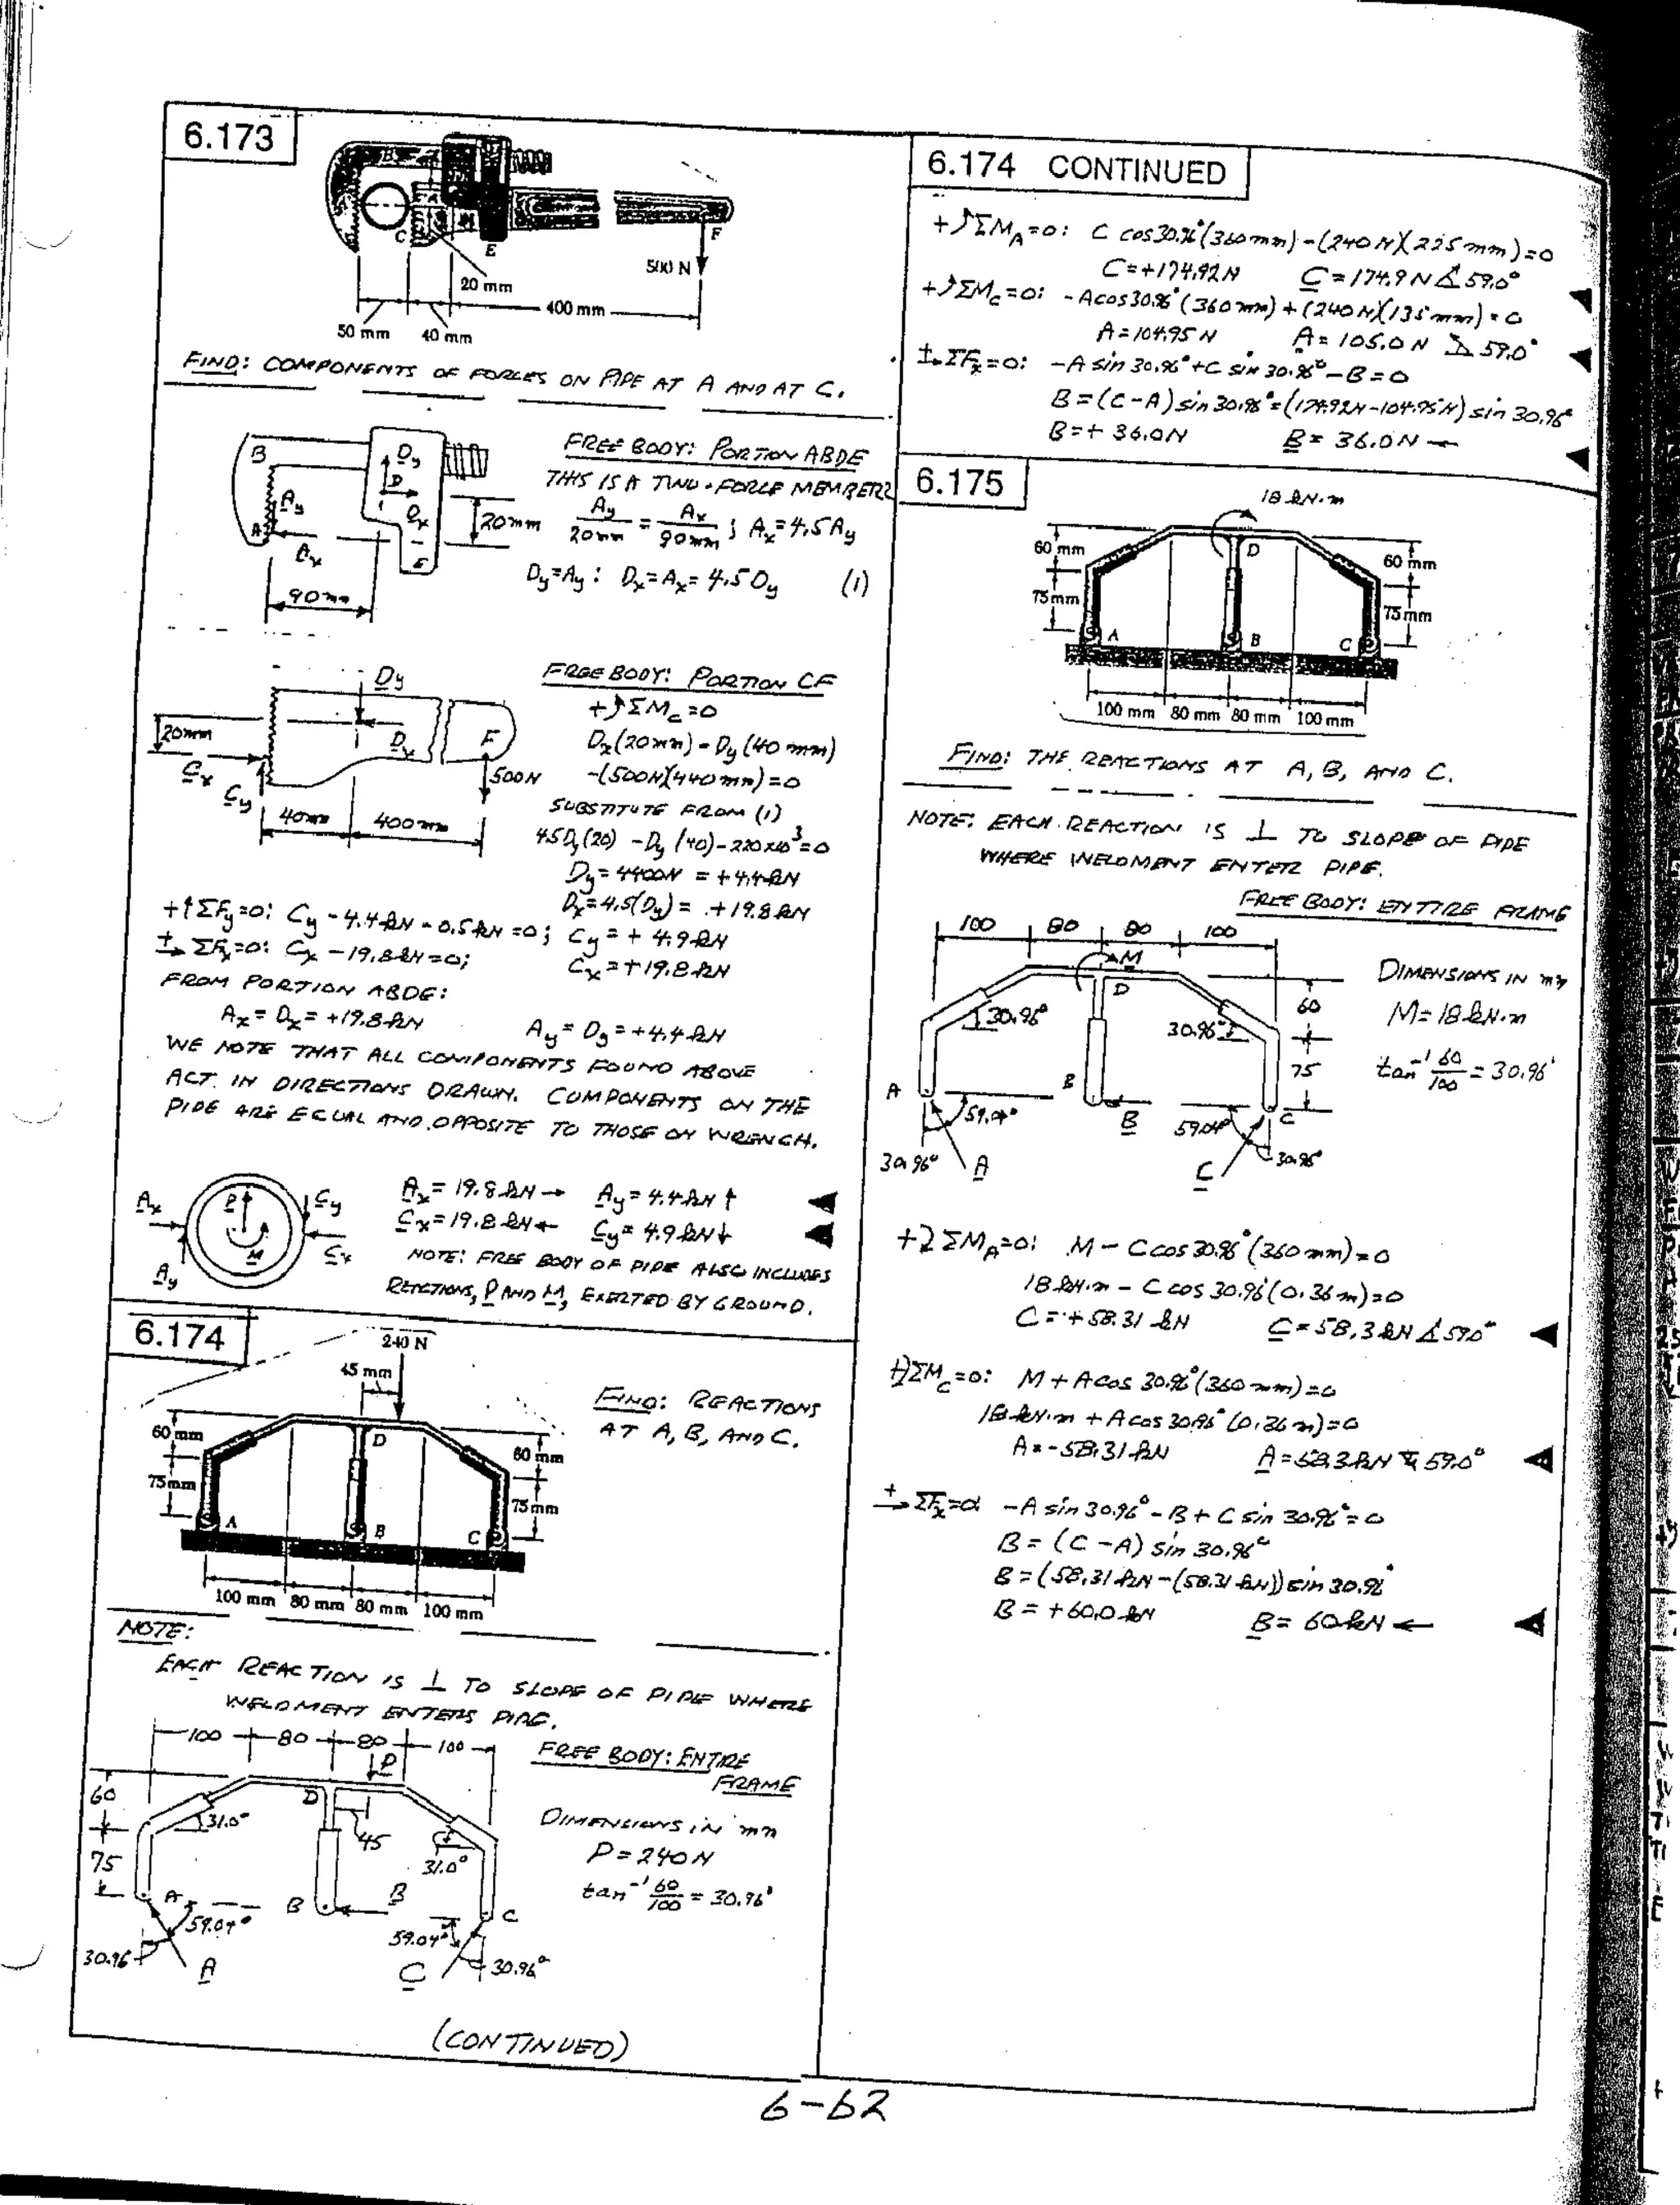 6.173
B
C
E
F
500 N
20 mm
400 mm
50 mm
40 mm
FIND: COMPONENTS OF FORCES ON PIPE AT A AND AT C.
B
Dy
D
Dx
Ay
A
Ax
E
20mm
90mm
FREE BODY: PORTION ABDE
THIS IS A TWO-FORCE MEMBER
Ay/20mm = Ax/90mm ; Ax = 4.5 Ay
Dy = Ay : Dx = Ax = 4.5 Dy (1)
Dy
Dx
F
20mm
Cx
Cy
500N
40mm
400mm
FREE BODY: PORTION CF
+↺ΣMc=0
Dx(20mm) - Dy(40 mm)
-(500N)(440mm)=0
SUBSTITUTE FROM (1)
4.5Dy(20) - Dy(40) - 220x10³=0
Dy = 4400N = +4.4kN
Dx = 4.5(Dy) = +19.8kN
+↑ΣFy=0: Cy - 4.4kN - 0.5kN = 0; Cy = + 4.9kN
+→ΣFx=0: Cx - 19.8kN = 0; Cx = +19.8kN
FROM PORTION ABDE:
Ax = Dx = +19.8kN Ay = Dy = +4.4kN
WE NOTE THAT ALL COMPONENTS FOUND ABOVE
ACT IN DIRECTIONS DRAWN. COMPONENTS ON THE
PIPE ARE EQUAL AND OPPOSITE TO THOSE ON WRENCH.
Ax
Ay
P
M
Cy
Cx
Ax = 19.8kN → Ay = 4.4kN ↑
Cx = 19.8kN ← Cy = 4.9kN ↓
NOTE: FREE BODY OF PIPE ALSO INCLUDES
REACTIONS, P AND M, EXERTED BY GROUND.
6.174
240 N
45 mm
60 mm
75mm
D
A
B
C
60 mm
75mm
100 mm 80 mm 80 mm 100 mm
FIND: REACTIONS
AT A, B, AND C.
NOTE:
EACH REACTION IS ⊥ TO SLOPE OF PIPE WHERE
WELDMENT ENTERS PIPE.
100 80 80 100
P
60
75
D
31.0°
45
31.0°
A
B
B
C
59.04°
59.04°
30.96°
A
C
30.96°
FREE BODY: ENTIRE
FRAME
DIMENSIONS IN mm
P = 240 N
tan⁻¹ 60/100 = 30.96°
(CONTINUED)
6.174 CONTINUED
+↺ΣMA=0: C cos30.96°(360mm) - (240 N)(225mm)=0
C = +174.92N C = 174.9 N ∠ 59.0°
+↺ΣMc=0: -A cos30.96°(360mm) + (240N)(135mm) = 0
A = 104.95 N A = 105.0 N 59.0°
+→ΣFx=0: -A sin 30.96° + C sin 30.96° - B = 0
B = (C-A) sin 30.96° = (174.92N - 104.95N) sin 30.96°
B = + 36.0N B = 36.0N ←
6.175
18 kN·m
60 mm
75mm
D
A
B
C
60 mm
75mm
100 mm 80 mm 80 mm 100 mm
FIND: THE REACTIONS AT A, B, AND C.
NOTE: EACH REACTION IS ⊥ TO SLOPE OF PIPE
WHERE WELDMENT ENTER PIPE.
FREE BODY: ENTIRE FRAME
100 80 80 100
M
D
30.96°
30.96°
60
75
A
B
B
C
59.04°
59.04°
30.96°
A
C
30.96°
DIMENSIONS IN mm
M = 18kN·m
tan⁻¹ 60/100 = 30.96°
+↻ΣMA=0: M - C cos 30.96°(360 mm) = 0
18kN·m - C cos 30.96°(0.36m) = 0
C = + 58.31 kN C = 58.3 kN ∠ 59.0°
+↻ΣMc=0: M + A cos 30.96°(360 mm) = 0
18kN·m + A cos 30.96°(0.36 m) = 0
A = -58.31 kN A = 58.3kN 59.0°
+→ΣFx=0 -A sin 30.96° - B + C sin 30.96° = 0
B = (C - A) sin 30.96°
B = (58.31 kN - (58.31 kN)) sin 30.96°
B = + 60.0 kN B = 60kN ←
6-62